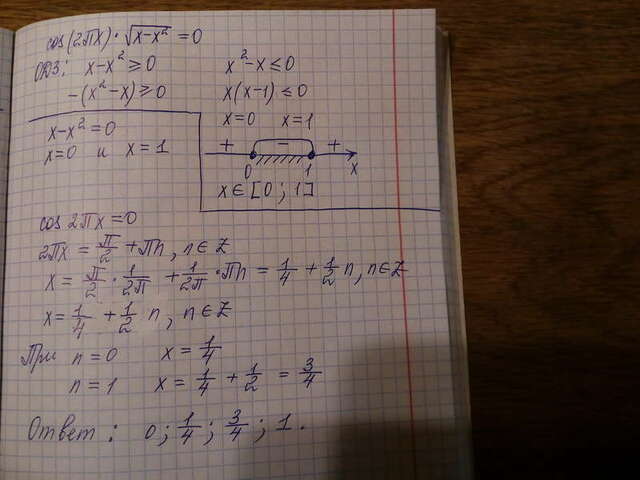 cos(2πx)·√(x-x²) = 0
ОДЗ: x-x² ≥ 0
-(x²-x) ≥ 0
x²-x ≤ 0
x(x-1) ≤ 0
x=0 x=1
+ - +
0 1 x
x ∈ [0; 1]
x-x² = 0
x=0 и x=1
cos 2πx = 0
2πx = π/2 + πn, n∈Z
x = π/2 · 1/2π + 1/2π · πn = 1/4 + 1/2 n, n∈Z
x = 1/4 + 1/2 n, n∈Z
При n=0 x = 1/4
n=1 x = 1/4 + 1/2 = 3/4
Ответ: 0; 1/4; 3/4; 1.